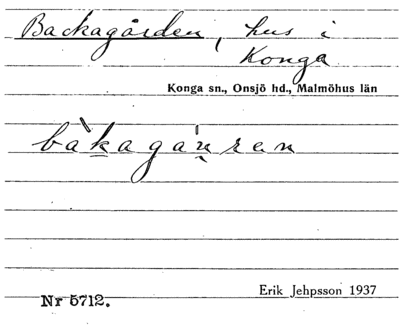 Backagården, hus i
Konga
Konga sn., Onsjö hd., Malmöhus län
bàkagáu̯ren
Erik Jehpsson 1937
Nr 5712.